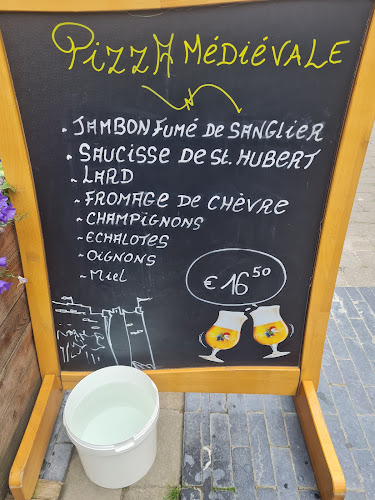 PizzA MÉDIÉVALE
- JAMBON FUMÉ DE SANGLIER
- SAUCISSE DE St. HUBERT
- LARD
- FROMAGE DE CHÈVRE
- CHAMPIGNONS
- ECHALOTES
- OIGNONS
- MIEL
€ 16.50